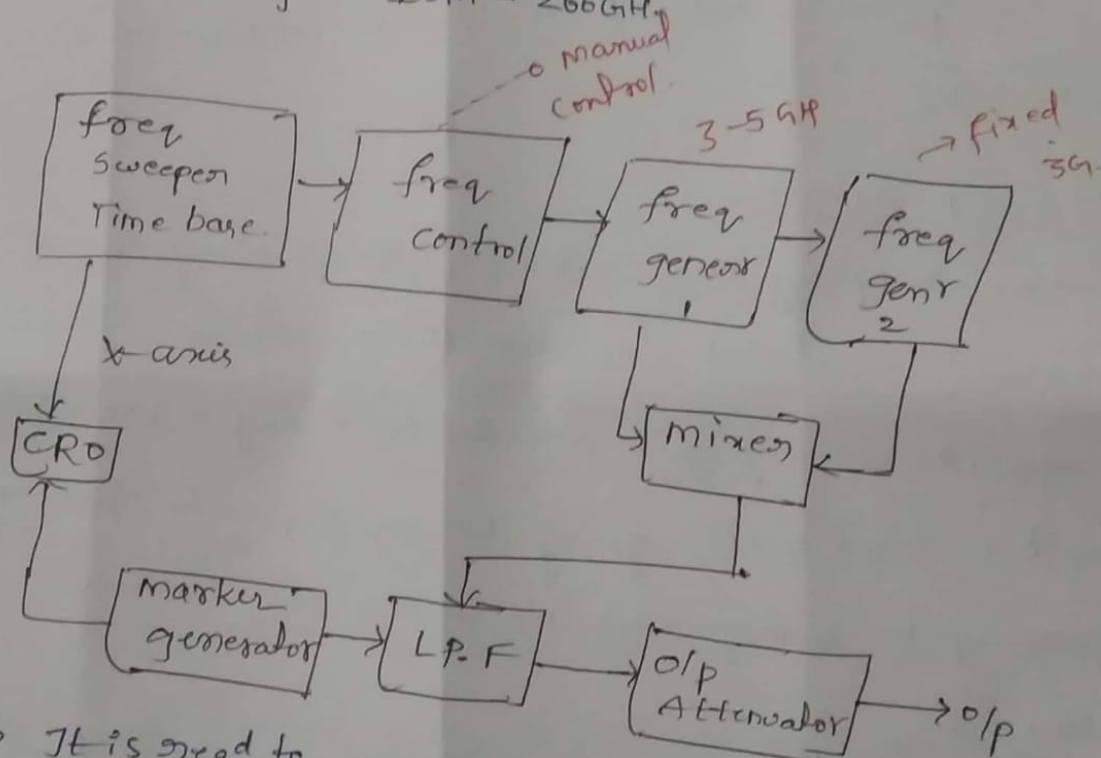 200GH
manual
control.
3-5GH
fixed
3G.
freq
Sweeper
Time base.
freq
control
freq
geneor
1
freq
genr
2
X-axis
CRO
mixer
marker
generator
L P.F
O/p
Attenuator
O/p
It is used to